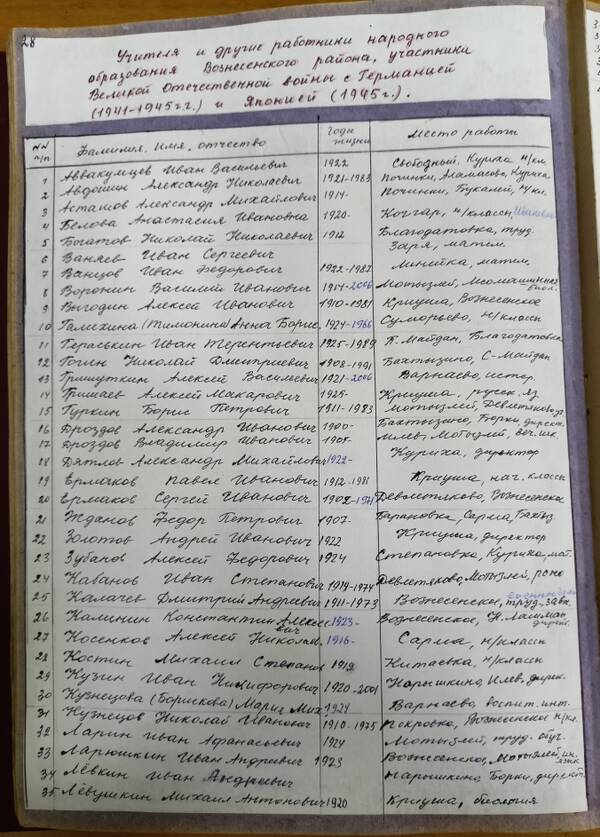 28
Учителя и другие работники народного
образования Вознесенского района, участники
Великой Отечественной войны с Германией
(1941-1945 г.г.) и Японией (1945 г.).
NN п/п Фамилия, имя, отчество Годы жизни Место работы
1 Аввакумцев Иван Васильевич 1922 Свободный, Куриха н/кл.
2 Авдошин Александр Николаевич 1921-1983 Починки, Аламасово, Куриха
3 Асташов Александр Михайлович 1914- Починки, Букалей, н/кл.
4 Белова Анастасия Ивановна 1920- н/классы
5 Богатов Николай Николаевич 1912 Благодатовка, труд.
6 Ваняев Иван Сергеевич Заря, матем.
7 Ванцов Иван Федорович 1922-1987 Линейка, матем.
8 Воронин Василий Иванович 1914-2006 Мотызлей,
9 Выгодин Алексей Иванович 1910-1981 Криуша, Вознесенское
10 Галихина (Тимонина) Анна Борис. 1924-1986 Суморьево, н/классы
11 Гераськин Иван Терентьевич 1925-1989 П. Майдан, Благодатовка
12 Гогин Николай Дмитриевич 1902-1991 Бахтызино, С-Майдан
13 Гришуткин Алексей Васильевич 1921-2006 Варнаево, истор.
14 Гришаев Алексей Макарович 1925- Криуша, русск. яз.
15 Гуркин Борис Петрович 1911-1983 Мотызлей, Девлетяково
16 Дроздов Александр Иванович 1900- Бахтызино, Борки, директ.
17 Дроздов Владимир Иванович 1905- Илев, Мотызлей,
18 Дятлов Александр Михайлович 1922- Куриха, директор
19 Ермаков Павел Иванович 1912-1981 Криуша, нач. классы
20 Ермаков Сергей Иванович 1902-1971 Девлетяково, Вознесенское
21 Жданов Федор Петрович 1907- Тарановка, Сарма, Бахтыз.
22 Золотов Андрей Иванович 1922 Криуша, директор
23 Зубанов Алексей Федорович 1924 Степановка, Куриха, мат.
24 Кабанов Иван Степанович 1919-1974 Девлетяково, Мотызлей, роно
25 Калачев Дмитрий Андреевич 1911-1973 Вознесенское, труд.
26 Калинин Константин Алексеевич 1923- Вознесенское, директ.
27 Косенков Алексей Николаев. 1916- Сарма, н/классы
28 Костин Михаил Степанов 1919 Китаевка, н/классы
29 Кузин Иван Никифорович 1920-2001 Нарышкино, Илев, дирек.
30 Кузнецова (Борискова) Мария Мих. 1924 Варнаево, воспит. инт.
31 Кузнецов Николай Иванович 1910-1975 Покровка, Вознесенское н/кл.
32 Ларин Иван Афанасьевич 1924 Мотызлей, труд. обуч.
33 Ларюшкин Иван Андреевич 1923 Вознесенское, Мотызлей, ин. язык
34 Лёвкин Иван Андреевич Нарышкино, Борки, директ.
35 Лёвушкин Михаил Антонович 1920 Криуша, биология